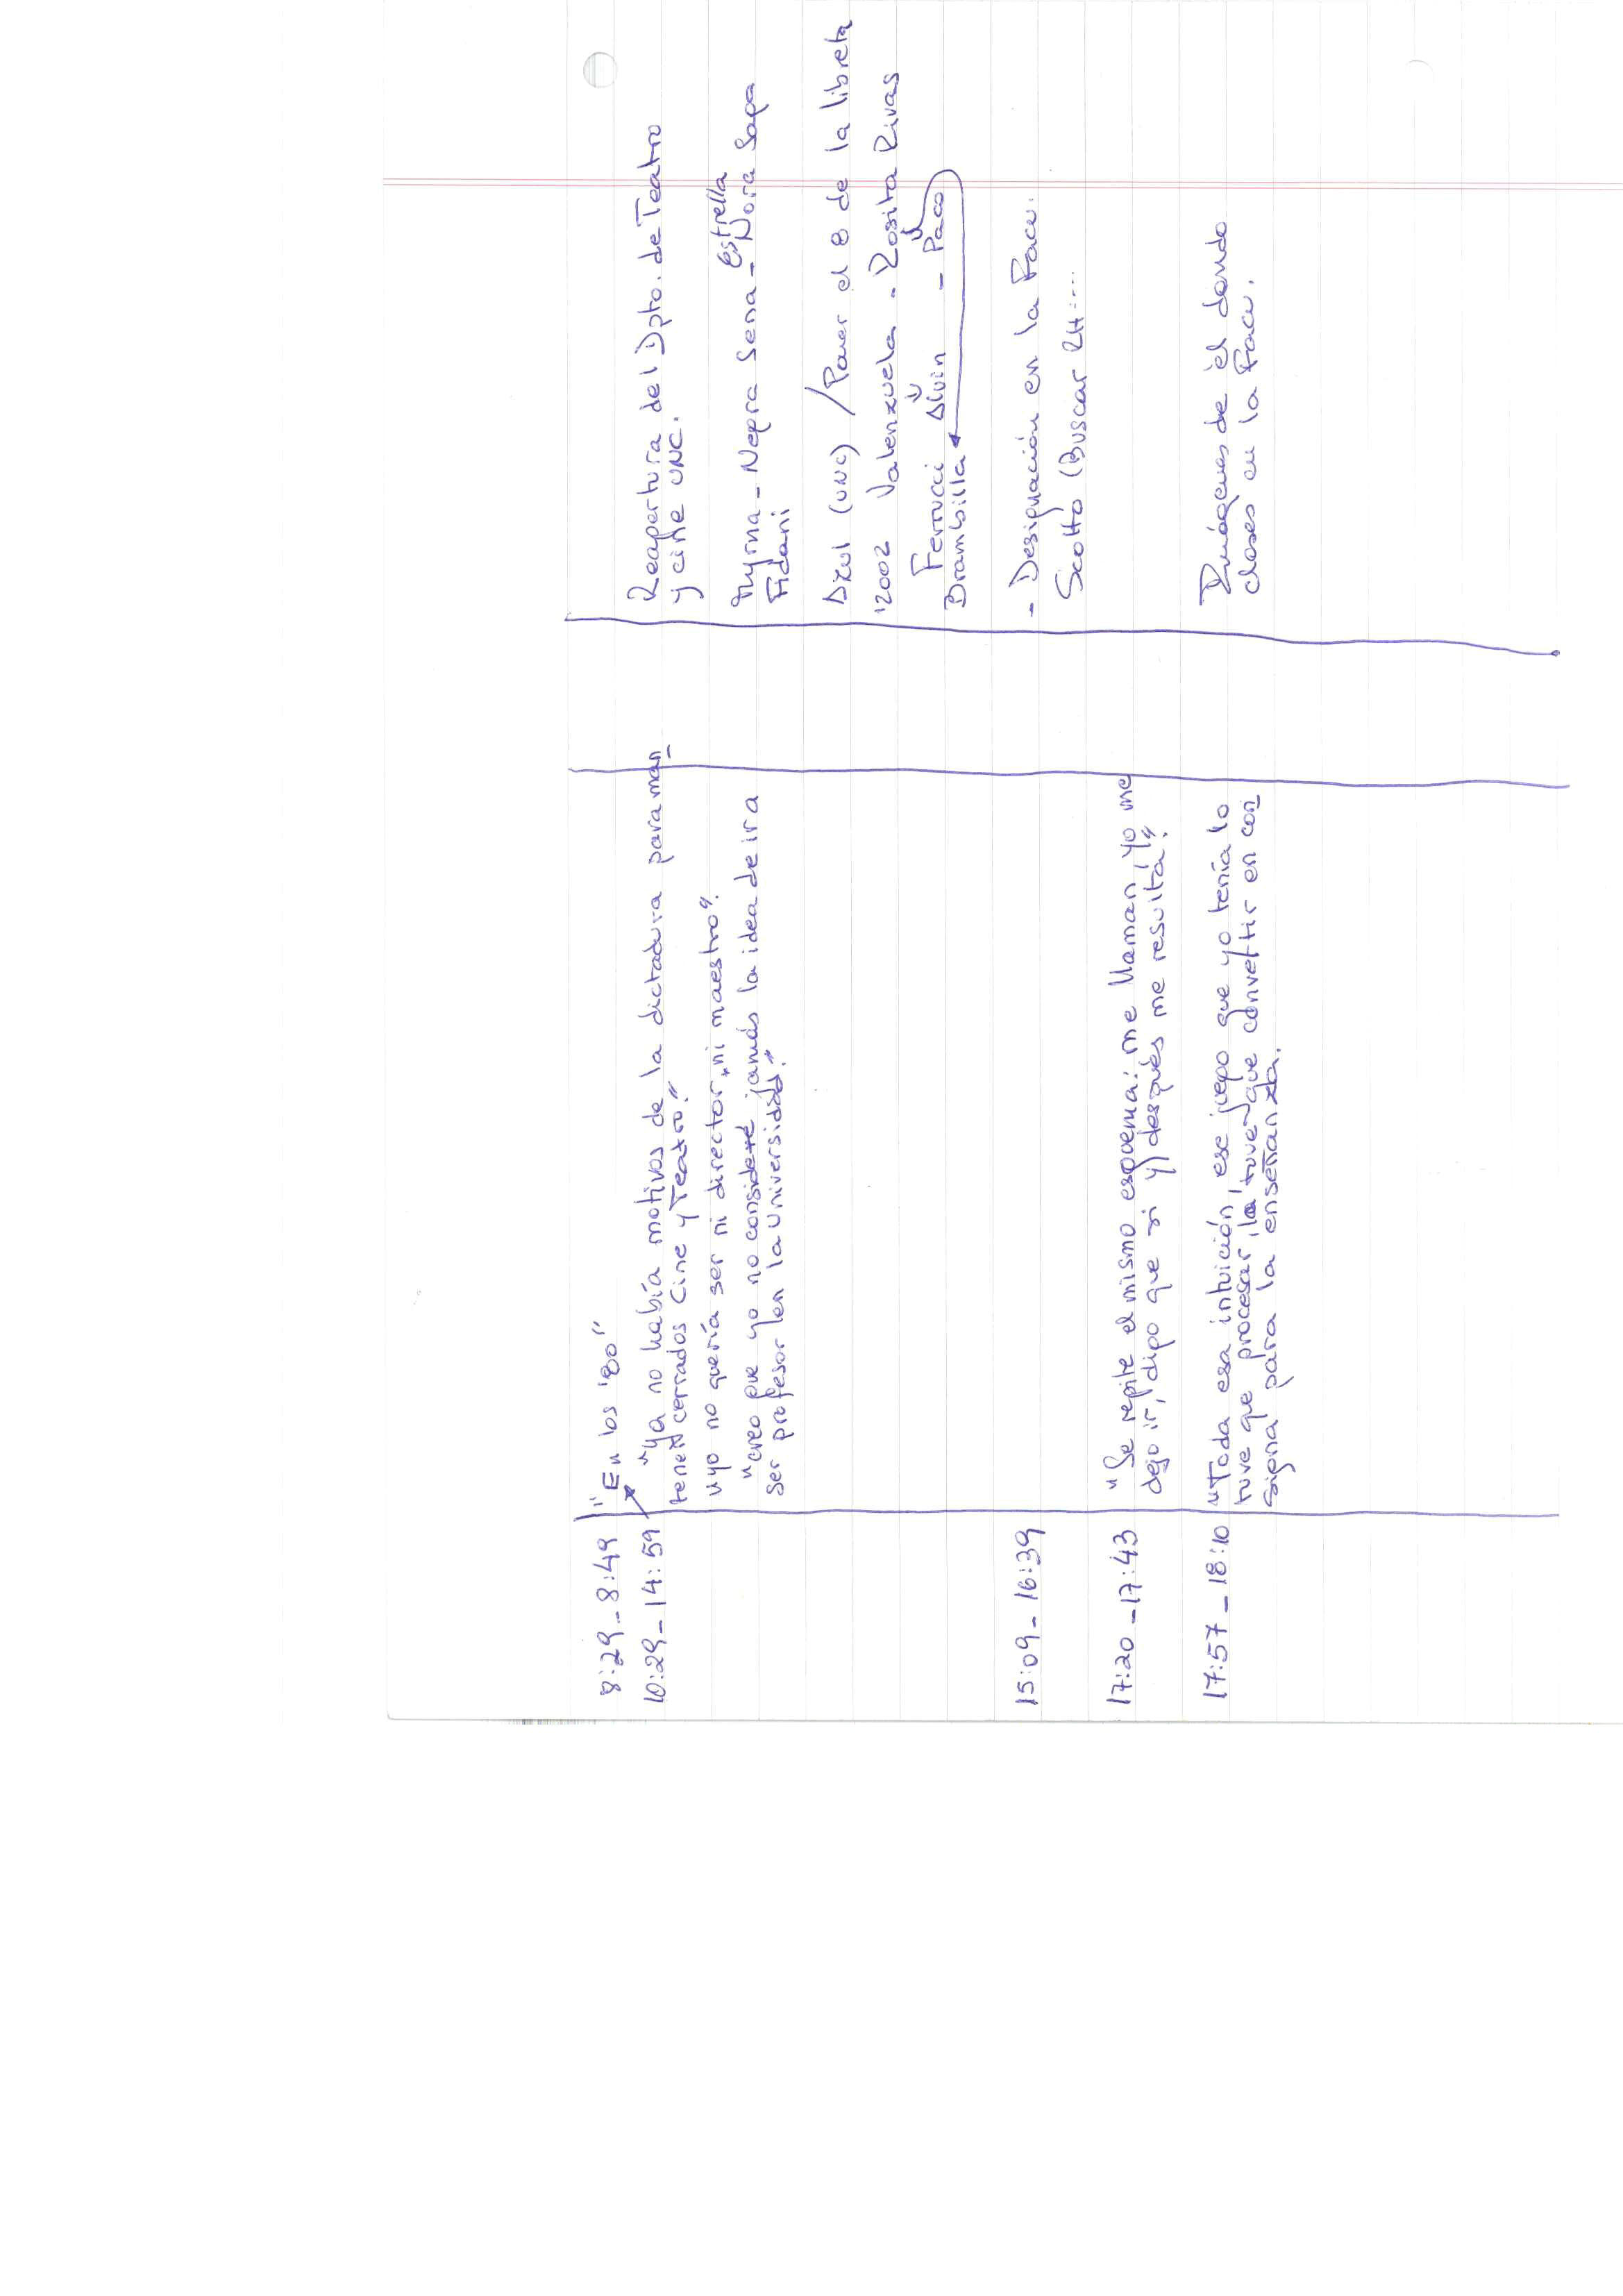 8:29 - 8:49 "En los '80"
10:29 - 14:59 "Ya no había motivos de la dictadura para man
tener cerrados Cine y Teatro."
"yo no quería ser ni director, ni maestro".
"creo que yo no consideré jamás la idea de ir a
ser profesor en la Universidad."
15:09 - 16:39
17:20 - 17:43 "Se repite el mismo esquema: me llaman, yo me
dejo ir, digo que si y después me resulta".
17:57 - 18:10 "Toda esa intuición, ese juego que yo tenía lo
tuve que procesar, la tuve que convertir en con
signa para la enseñanza.
Reapertura del Dpto. de Teatro
y cine UNC.
Estrella
Myrna - Negra Sena - Nora Sapa
Fidani
Azul (UNC) / Poner el 8 de la libreta
'2002 Valenzuela - Rosita Rivas
Ferrucci Alvin - Paco
Brambilla
- Designación en la Facu.
Scotto (Buscar RH....
Imágenes de él dando
clases en la Facu.